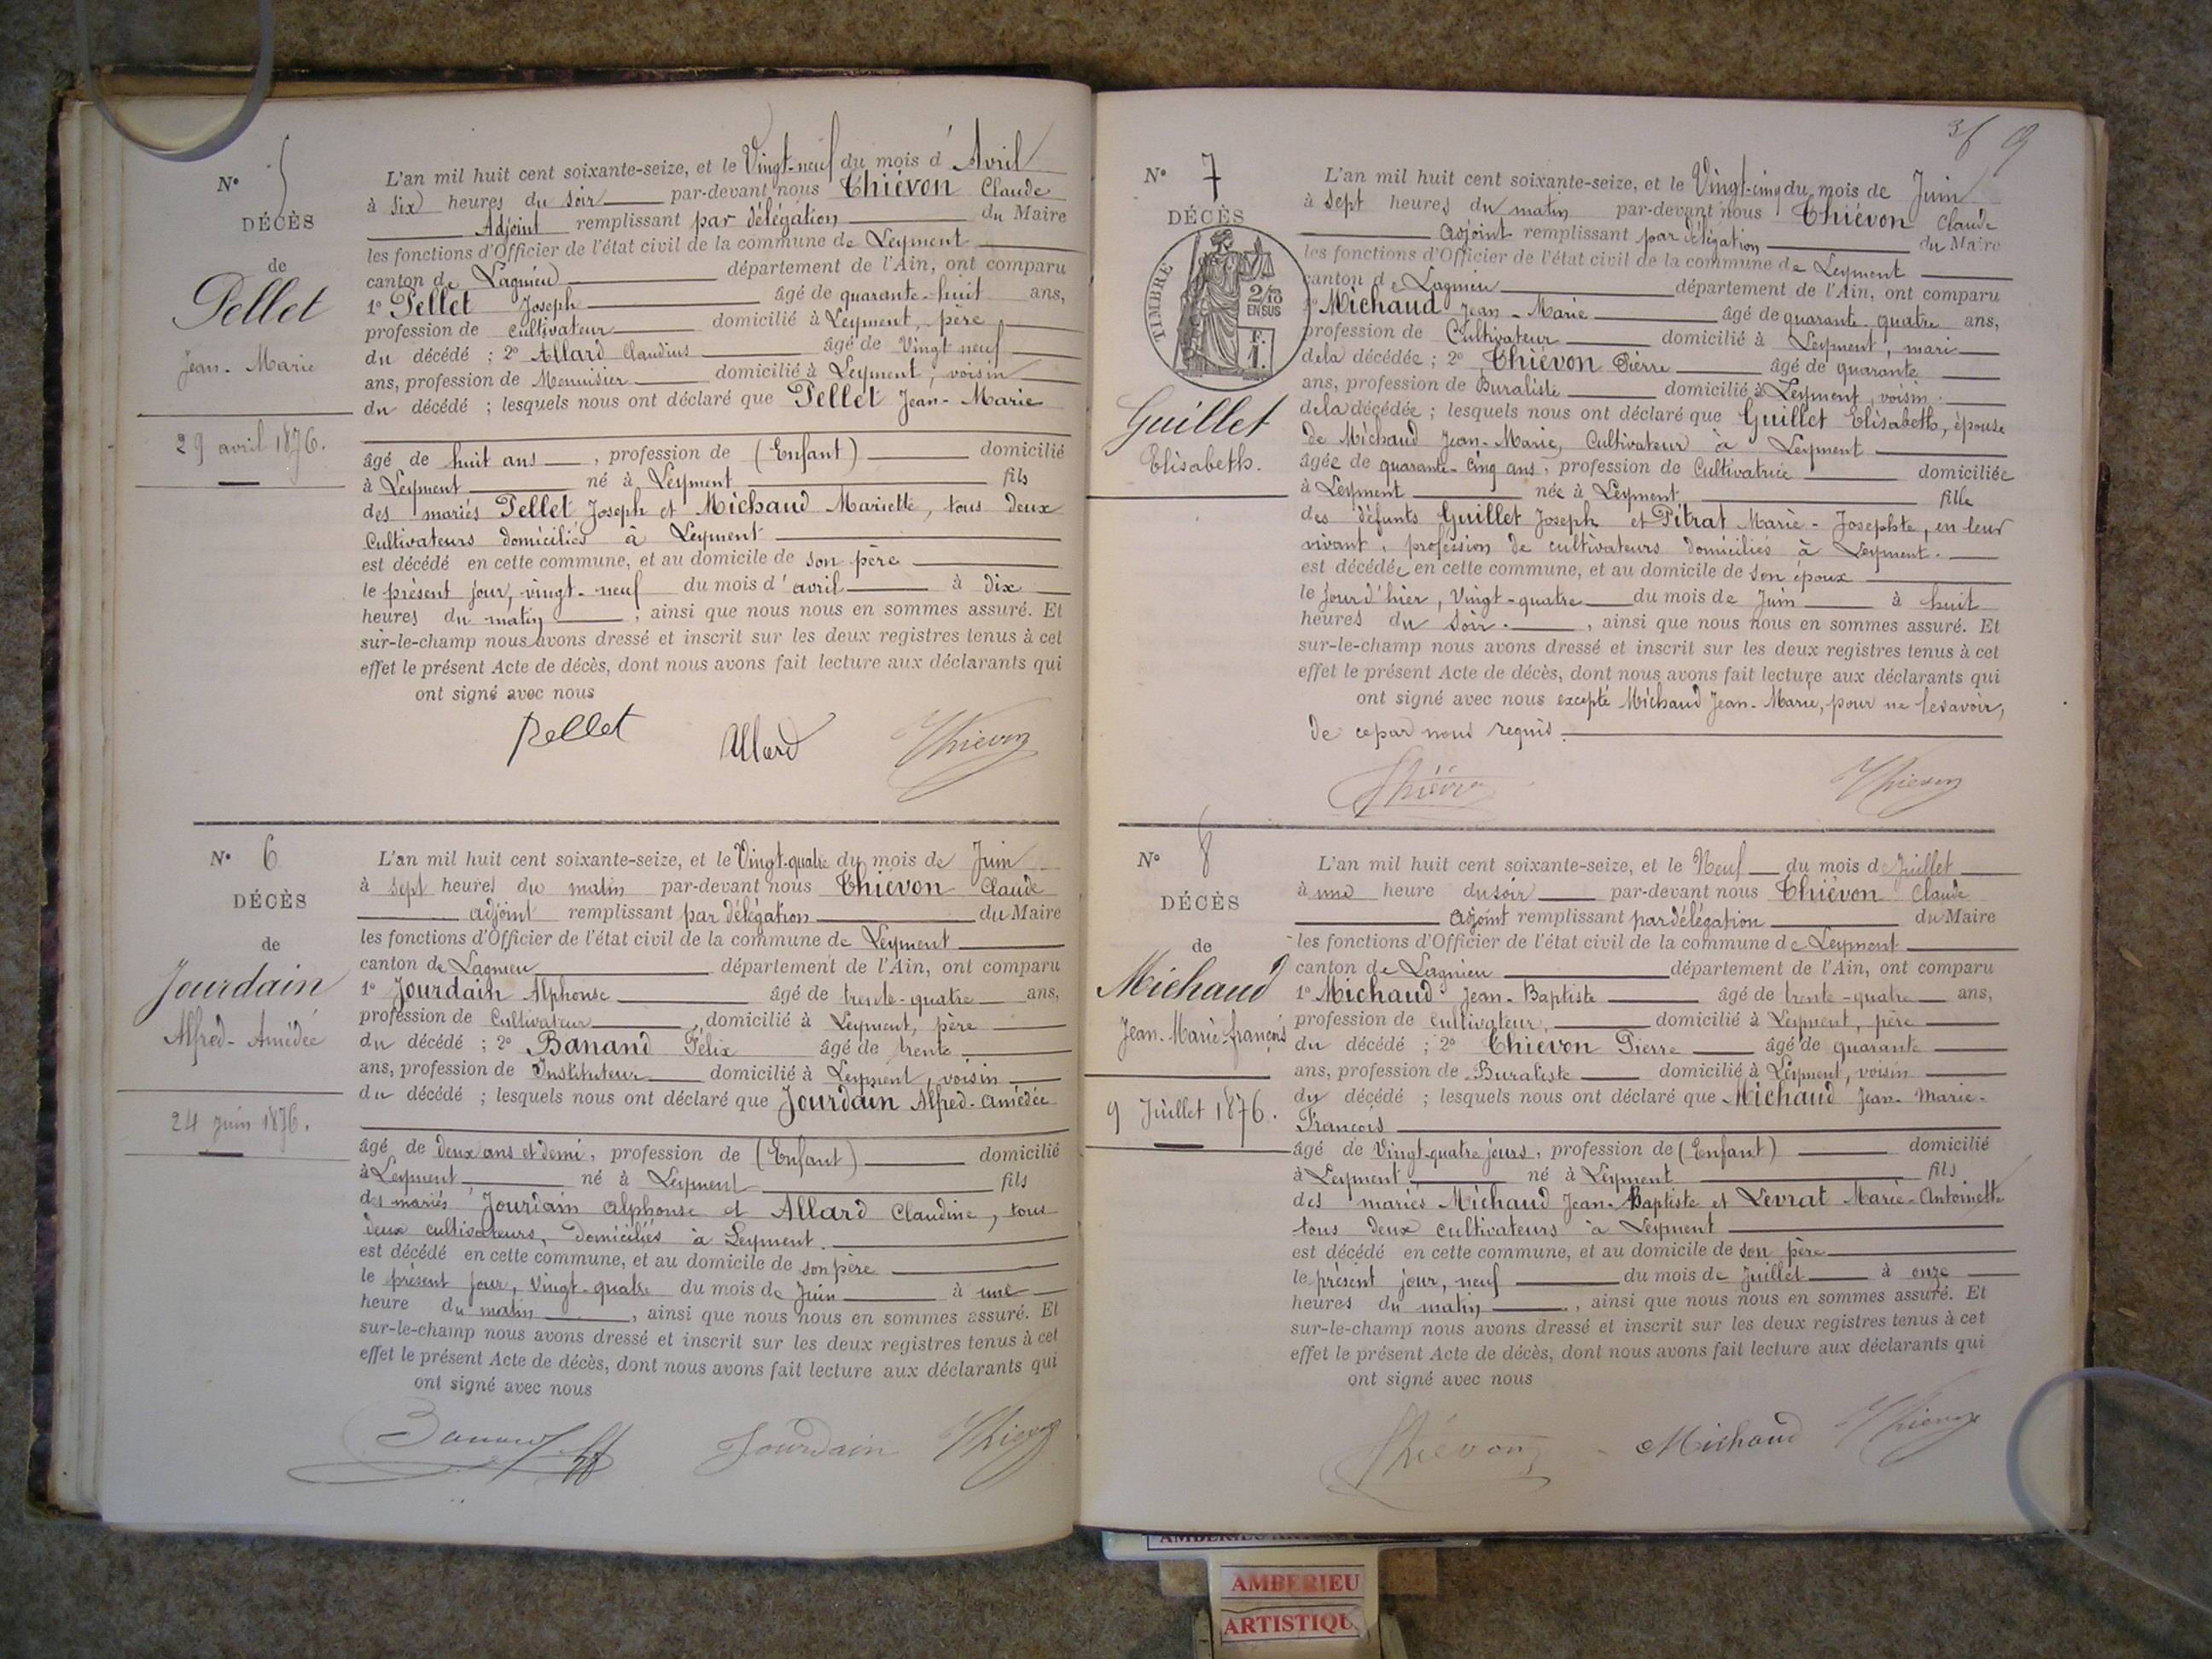 N° 5
DÉCÈS
de
Pellet
Jean-Marie
29 avril 1876.
L'an mil huit cent soixante-seize, et le Vingt-neuf du mois d'Avril
à six heures du soir par-devant nous Thiévon Claude
Adjoint remplissant par délégation du Maire
les fonctions d'Officier de l'état civil de la commune de Leyment
canton de Lagnieu département de l'Ain, ont comparu
1° Pellet Joseph âgé de quarante-huit ans,
profession de cultivateur domicilié à Leyment, père
du décédé ; 2° Allard Claudius âgé de Vingt neuf
ans, profession de Menuisier domicilié à Leyment, voisin
du décédé ; lesquels nous ont déclaré que Pellet Jean-Marie
âgé de huit ans, profession de (Enfant) domicilié
à Leyment né à Leyment fils
des mariés Pellet Joseph et Michaud Mariette, tous deux
Cultivateurs domiciliés à Leyment
est décédé en cette commune, et au domicile de son père
le présent jour, vingt-neuf du mois d'avril à dix
heures du matin, ainsi que nous nous en sommes assuré. Et
sur-le-champ nous avons dressé et inscrit sur les deux registres tenus à cet
effet le présent Acte de décès, dont nous avons fait lecture aux déclarants qui
ont signé avec nous
Pellet Allard Thiévon
N° 6
DÉCÈS
de
Jourdain
Alfred-Amédée
24 juin 1876.
L'an mil huit cent soixante-seize, et le Vingt-quatre du mois de Juin
à sept heures du matin par-devant nous Thiévon Claude
adjoint remplissant par délégation du Maire
les fonctions d'Officier de l'état civil de la commune de Leyment
canton de Lagnieu département de l'Ain, ont comparu
1° Jourdain Alphonse âgé de trente-quatre ans,
profession de Cultivateur, domicilié à Leyment, père
du décédé ; 2° Banand Félix âgé de trente
ans, profession de Instituteur domicilié à Leyment, voisin
du décédé ; lesquels nous ont déclaré que Jourdain Alfred-Amédée
âgé de deux ans et demi, profession de (Enfant) domicilié
à Leyment né à Leyment fils
des mariés Jourdain Alphonse et Allard Claudine, tous
deux cultivateurs, domiciliés à Leyment.
est décédé en cette commune, et au domicile de son père
le présent jour, Vingt-quatre du mois de Juin à une
heure du matin, ainsi que nous nous en sommes assuré. Et
sur-le-champ nous avons dressé et inscrit sur les deux registres tenus à cet
effet le présent Acte de décès, dont nous avons fait lecture aux déclarants qui
ont signé avec nous
Jourdain Thiévon
9
N° 7
DÉCÈS
TIMBRE
2/10
EN SUS
F.
1.
Guillet
Elisabeth.
L'an mil huit cent soixante-seize, et le Vingt-cinq du mois de Juin
à sept heures du matin par-devant nous Thiévon Claude
adjoint remplissant par délégation du Maire
les fonctions d'Officier de l'état civil de la commune de Leyment
canton de Lagnieu département de l'Ain, ont comparu
1° Michaud Jean-Marie âgé de quarante-quatre ans,
profession de Cultivateur domicilié à Leyment, mari
de la décédée ; 2° Thiévon Pierre âgé de quarante
ans, profession de Buraliste domicilié à Leyment, voisin
de la décédée ; lesquels nous ont déclaré que Guillet Elisabeth, épouse
de Michaud Jean-Marie, Cultivateur à Leyment
âgée de quarante-cinq ans, profession de Cultivatrice domiciliée
à Leyment née à Leyment fille
des défunts Guillet Joseph et Pitrat Marie-Josephte, en leur
vivant, profession de cultivateurs domiciliés à Leyment.
est décédée en cette commune, et au domicile de son époux
le jour d'hier, Vingt-quatre du mois de Juin à huit
heures du soir, ainsi que nous nous en sommes assuré. Et
sur-le-champ nous avons dressé et inscrit sur les deux registres tenus à cet
effet le présent Acte de décès, dont nous avons fait lecture aux déclarants qui
ont signé avec nous excepté Michaud Jean-Marie, pour ne le savoir,
de ce par nous requis.
Thiévon Thiévon
N° 8
DÉCÈS
de
Michaud
Jean-Marie-françois
9 Juillet 1876.
L'an mil huit cent soixante-seize, et le Neuf du mois de Juillet
à une heure du soir par-devant nous Thiévon Claude
adjoint remplissant par délégation du Maire
les fonctions d'Officier de l'état civil de la commune de Leyment
canton de Lagnieu département de l'Ain, ont comparu
1° Michaud Jean-Baptiste âgé de trente-quatre ans,
profession de cultivateur, domicilié à Leyment, père
du décédé ; 2° Thiévon Pierre âgé de quarante
ans, profession de Buraliste domicilié à Leyment, voisin
du décédé ; lesquels nous ont déclaré que Michaud Jean-Marie-
François
âgé de Vingt-quatre jours, profession de (Enfant) domicilié
à Leyment né à Leyment fils
des mariés Michaud Jean-Baptiste et Levrat Marie-Antoinette
tous deux cultivateurs à Leyment
est décédé en cette commune, et au domicile de son père
le présent jour, neuf du mois de Juillet à onze
heures du matin, ainsi que nous nous en sommes assuré. Et
sur-le-champ nous avons dressé et inscrit sur les deux registres tenus à cet
effet le présent Acte de décès, dont nous avons fait lecture aux déclarants qui
ont signé avec nous
Thiévon Michaud Thiévon
AMBERIEU
ARTISTIQU